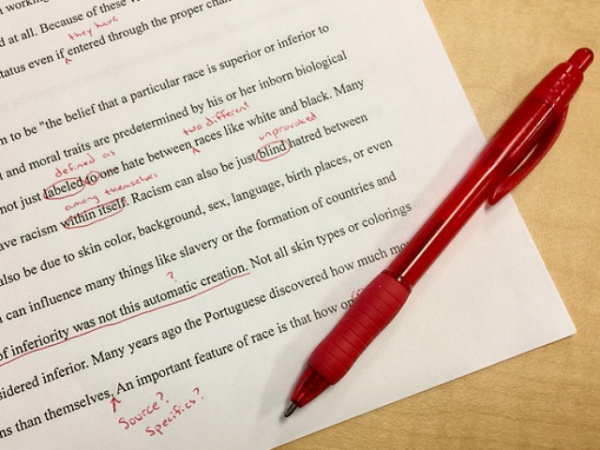 working
they have
d at all. Because of these
status even if entered through the proper chan
m to be "the belief that a particular race is superior or inferior to
l and moral traits are predetermined by his or her inborn biological
two different
not just labeled to one hate between races like white and black. Many
defined as
unprovoked
ave racism within itself. Racism can also be just blind hatred between
among themselves
also be due to skin color, background, sex, language, birth places, or even
n can influence many things like slavery or the formation of countries and
?
of inferiority was not this automatic creation. Not all skin types or colorings
sidered inferior. Many years ago the Portuguese discovered how much mo
ns than themselves. An important feature of race is that how on
Source?
Specifics?